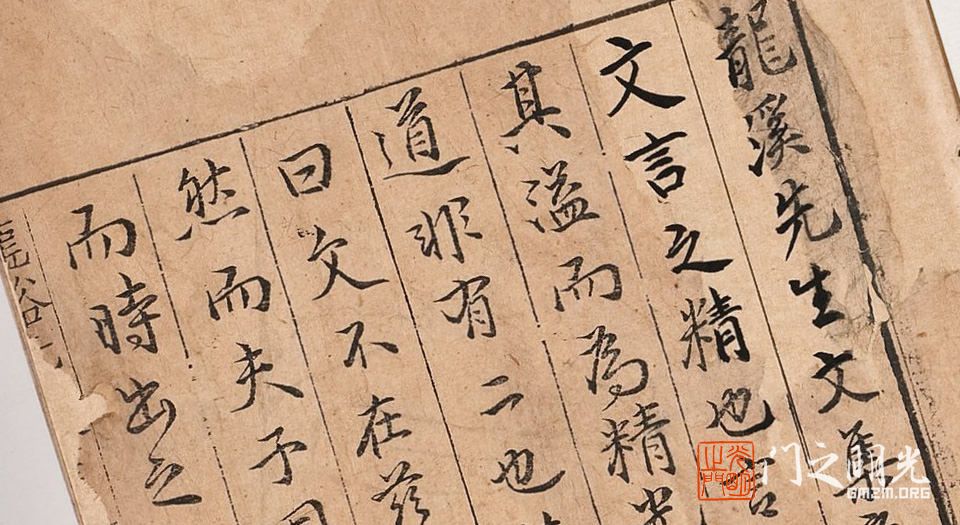 龍溪先生文集
文言之精也
其溢而為精
道非有二也
曰文不在茲
然而夫子
而時出之
龍谿
门之光
GMZM.ORG